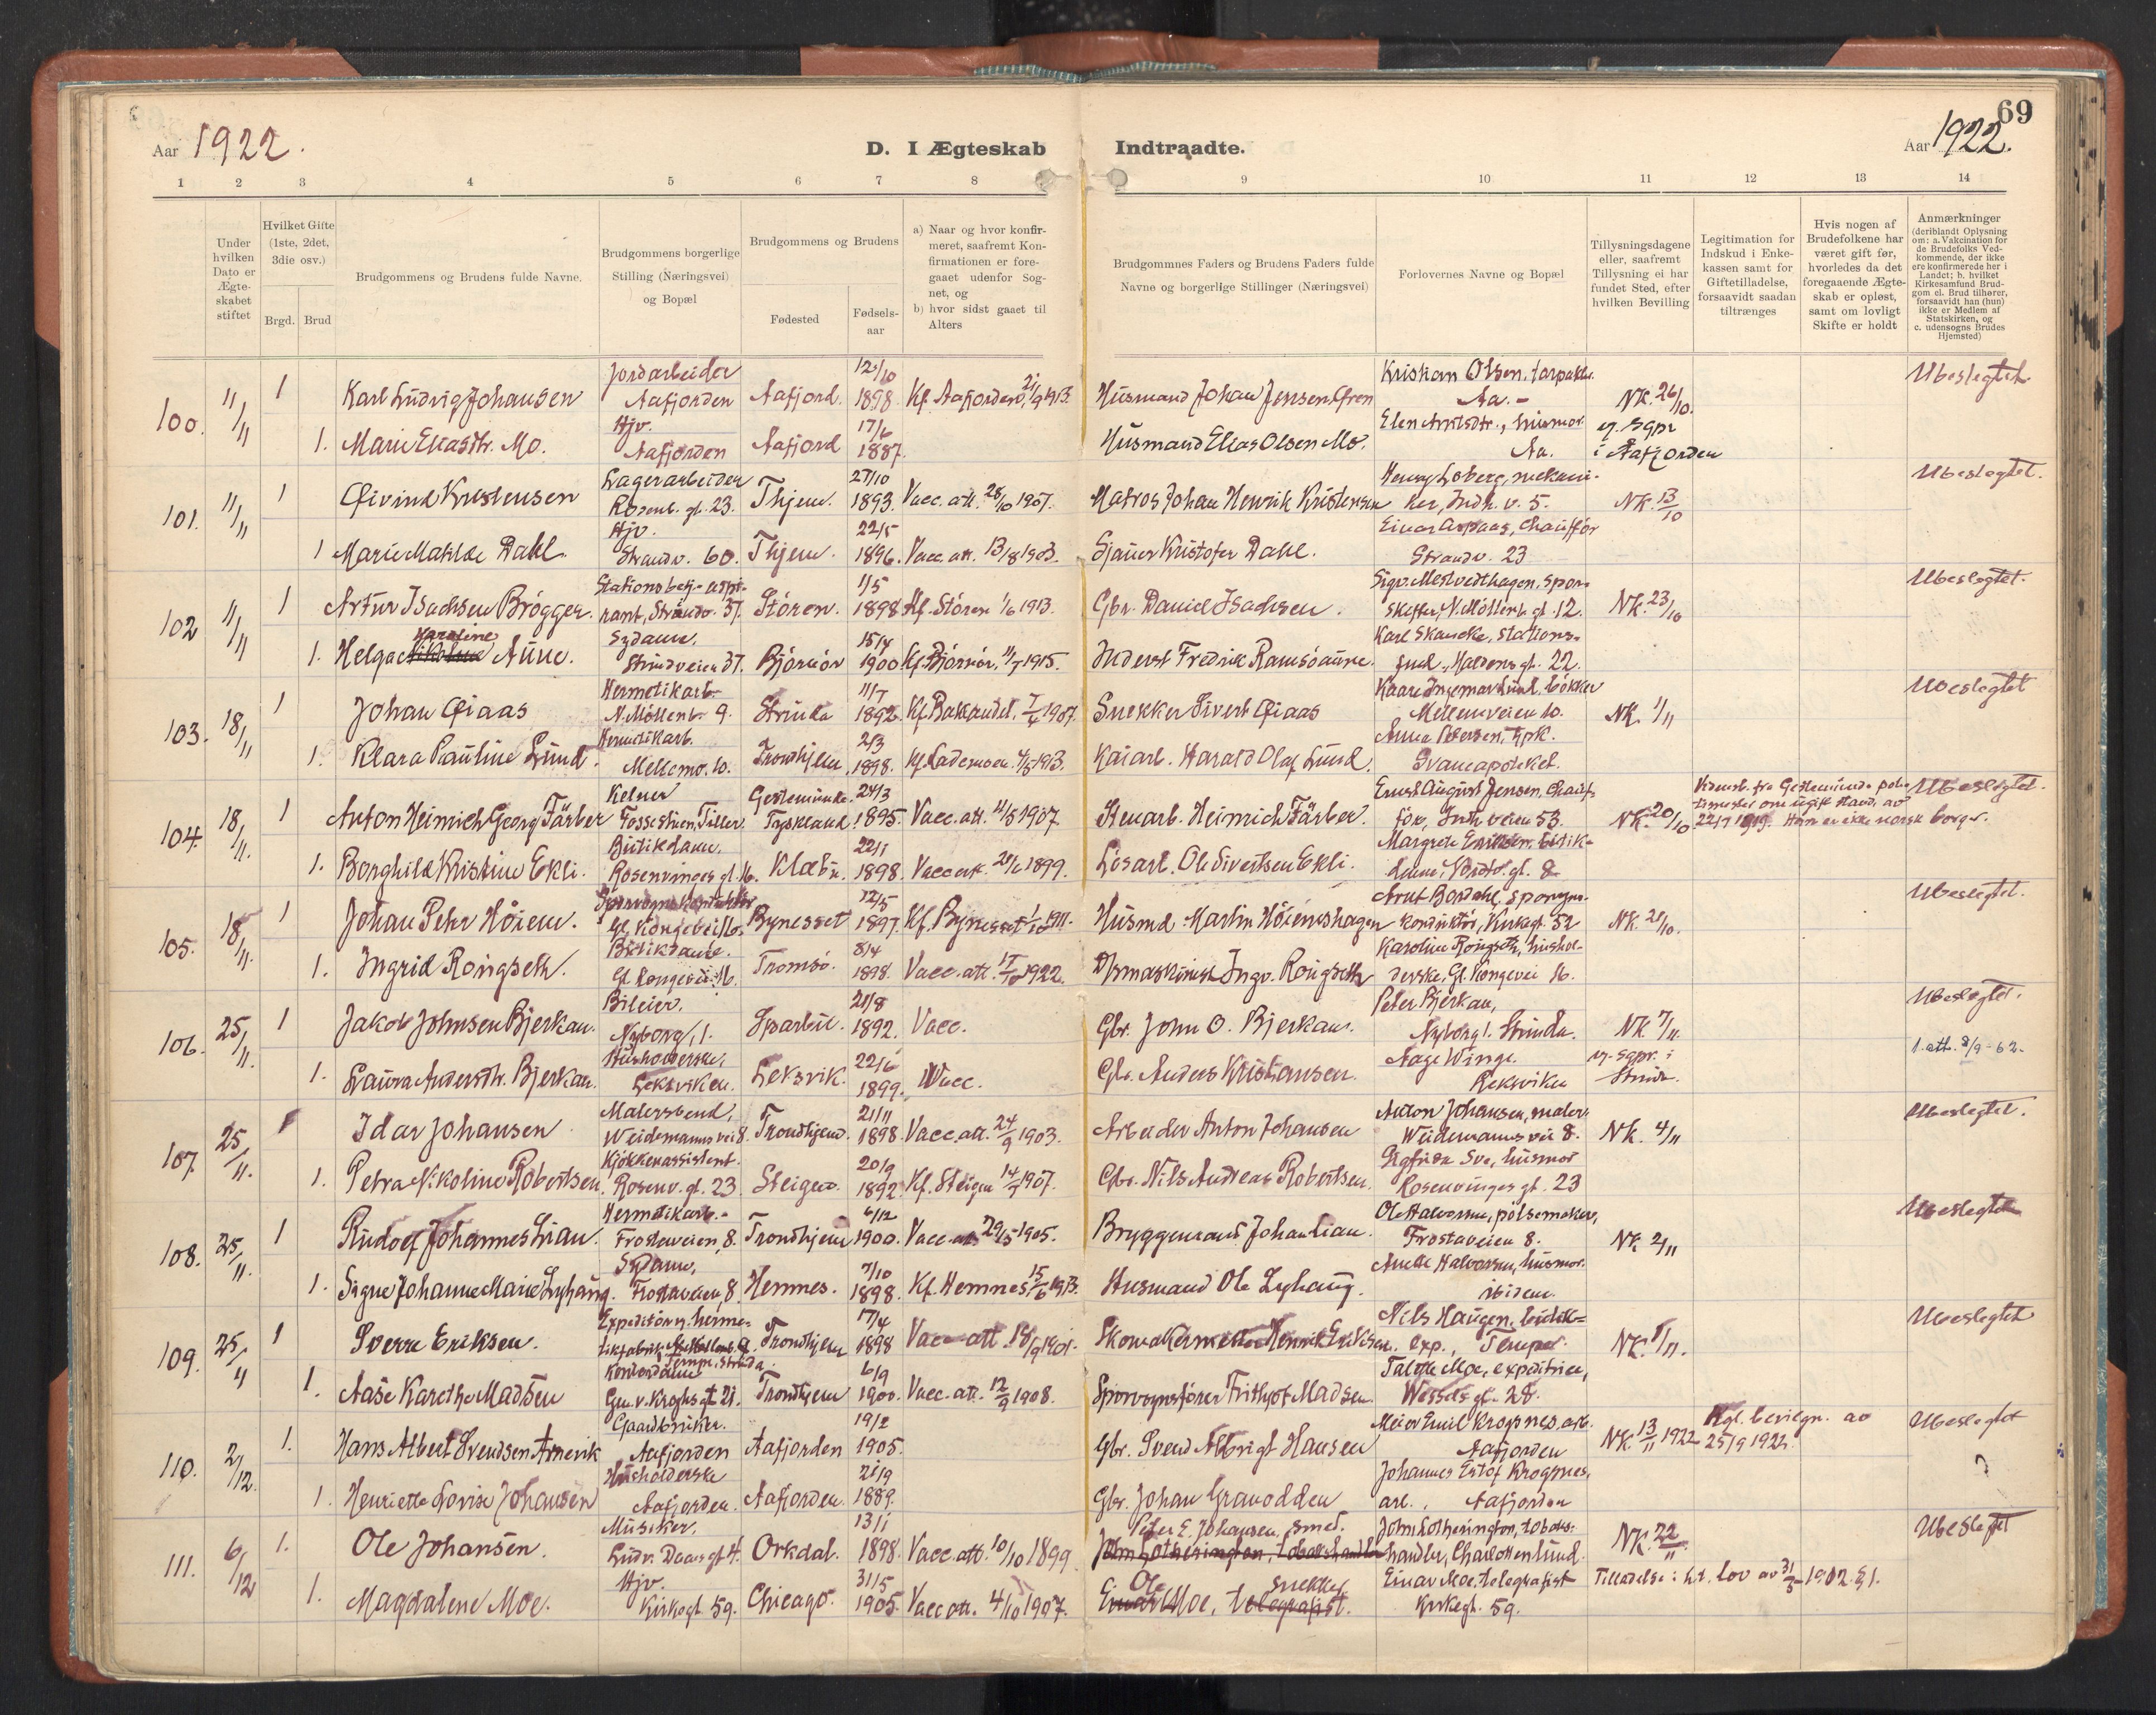 69
Aar 1922.
D. I Ægteskab Indtraadte.
Aar 1922.
1 2 3 4 5 6 7 8 9 10 11 12 13 14
Under hvilken Dato er Ægteskabet stiftet
Hvilket Gifte (1ste, 2det, 3die osv.)
Brgd. Brud
Brudgommens og Brudens fulde Navne.
Brudgommens borgerlige Stilling (Næringsvei) og Bopæl
Brudgommens og Brudens
Fødested
Fødselsaar
a) Naar og hvor konfirmeret, saafremt Konfirmationen er foregaaet udenfor Sognet, og
b) hvor sidst gaaet til Alters
Brudgommnes Faders og Brudens Faders fulde Navne og borgerlige Stillinger (Næringsvei)
Forlovernes Navne og Bopæl
Tillysningsdagene eller, saafremt Tillysning ei har fundet Sted, efter hvilken Bevilling
Legitimation for Indskud i Enkekassen samt for Giftetilladelse, forsaavidt saadan tiltrænges
Hvis nogen af Brudefolkene har været gift før, hvorledes da det foregaaende Ægteskab er opløst, samt om lovligt Skifte er holdt
Anmærkninger (deriblandt Oplysning om: a. Vakcination for de Brudefolks Vedkommende, der ikke ere konfirmerede her i Landet; b. hvilket Kirkesamfund Brudgom el. Brud tilhører, forsaavidt han (hun) ikke er Medlem af Statskirken, og c. udensogns Brudes Hjemsted)
100. 11/11 1 Karl Ludvig Johansen Jordarbeider Aafjorden Aafjord. 12/10 1898. Kf. Aafjorden 21/9 1913. Husmand Johan Jensen Gren Kristian Olsen, Aa. - NK. 26/10. Ubeslegtet.
1. Marie Eliasdtr. Mo. Hjv. Aafjorden Aafjord 17/6 1887. Husmand Elias Olsen Mo. Elen husmor. Aa. og Sgpr i Aafjorden
101. 11/11 1 Øivind Kristensen Lagerarbeider Rosenb. gt. 23. Thjem. 27/10 1893. Vacc. att. 28/10 1907. Matros Johan Henrik Kristensen Henry Loberg, mekaniker, Indh. v. 5. NK. 13/10 Ubeslegtet.
1 Marie Matilde Dahl. Hjv. Strandv. 60. Thjem. 22/5 1896. Vacc. att. 13/8 1903. Sjauer Kristofer Dahl. Einar Aspaas, Chauffør Strandv. 23
102 11/11 1 Artur Isachsen Brøgger. Stationsbetj. aspirant, Strandv. 37. Støren. 1/5 1898 Kf. Støren 1/6 1913. Gbr. Daniel Isachsen. N. Møllenb. gt. 12. NK. 23/10 Ubeslegtet.
1. Helga Karoline Aune. Sydame. Strindveien 37. Bjørnør 15/4 1900. Kf. Bjørnør, 11/7 1915. Inderst Fredrik Ramsøaune. Karl Skancke, stations- 22.
103. 18/11 1 Johan Øiaas Hermetikarb. N. Møllenb. 9. Strinda 11/7 1892. Kf. Bakkandet, 7/4 1907. Snekker Sivert Øiaas Kaare Ingemar Lund, bøkker Mellemveien 10. NK. 1/11 Ubeslegtet
1. Klara Pauline Lund. Hermetikarb. Mellemv. 10. Trondhjem 2/3 1898. Kf. Lademoen. 4/5 1913. Kaiarb. Harald Olaf Lund. Anna Petersen, Svaneapoteket.
104. 18/11. 1 Anton Heinrich Georg Färber Kelner Fossestuen, Tiller. Geestemünde. Tyskland. 24/3 1895. Vacc. att. 4/5 1907 Stenarb. Heinrich Färber. Ernst August Jensen, Chauffør, Indh. veien 53. NK. 20/10. Ubeslegtet.
22/7 1919. Han er ikke norsk borger.
1. Borghild Kristine Ekli. Butikdame. Rosenvinges gt. 16. Klæbu. 22/1 1898. Vacc. att. 21/6 1899. Løsarb. Ole Sivertsen Ekli. Margrete Eriksen, butikdame, Nordre gt. 8
105. 18/11. 1 Johan Peter Høiem. Sporvognskonduktør Gl. Kongevei 16. Bynesset 12/5 1897. Kf. Bynesset 1/10 1911. Husmd. Martin Høiemshagen Arnt Bordahl, sporvogns konduktør, Kirkegt. 52 NK. 21/10. Ubeslegtet.
1. Ingrid Rongseth. Butikdame. Gl. Kongevei 16. Tromsø. 8/4 1898. Vacc. att. 17/10 1922. Ingv. Rongseth Karoline Rongseth, husholderske, Gl. Kongevei 16.
106. 25/11. 1 Jakob Johnsen Bjerkan. Bileier. Nyborg 1. Sparbu. 21/8 1892. Vacc. Gbr. John O. Bjerkan. Peter Bjerkan, Nyborg 1. Strinda. NK 7/11 Ubeslegtet.
1. Laura Andersdtr. Bjerkan. Husholderske, Leksviken. Leksvik. 22/6 1899. Vacc. Gbr. Anders Kristiansen. Aage Winge. Leksviken og sgpr. i Strinda. 1. att. 8/9-62.
107. 25/11. 1 Idar Johansen Malersvend, Weidemanns vei 8. Trondhjem. 21/11 1898. Vacc. att. 24/9 1903. Arbeider Anton Johansen Anton Johansen, maler. Weidemanns vei 8. NK. 4/11 Ubeslegtet.
1. Petra Nikoline Robertsen. Kjøkkenassistent. Rosenv. gt. 23. Steigen. 20/9 1892. Kf. Steigen 14/7 1907. Gbr. Nils Andreas Robertsen. Sigfrida Sve, husmor Rosenvinges gt. 23
108. 25/11. 1 Rudolf Johannes Lian. Hermetikarb. Frostaveien, 8. Trondhjem 6/12 1900. Vacc. att. 29/5 1905. Bryggemand Johan Lian. Ole Halvorsen, pølsemaker, Frostaveien 8. NK 2/11 Ubeslegtet
1. Signe Johanne Marie Lyhaug. Sydame, Frostaveien, 8. Hemnes. 7/10 1898. Kf. Hemnes, 15/6 1913. Husmand Ole Lyhaug. Anette Halvorsen, husmor. ibidem.
109. 25/11 1 Sverre Eriksen. Expeditør v. hermetikfabrik, Tempe, Strinda. Trondhjem 17/4 1898 Vacc att 18/9 1901. Skomakermester Henrik Eriksen. Nils Haugen, butik-exp., Tempe. NK. 1/11. Ubeslegtet
1. Aase Karethe Madsen Kontordame Gen. v. Kroghs gt 21. Trondhjem 6/9 1900. Vacc. att. 12/9 1908. Sporvognsfører Frithjof Madsen. Moe, expeditrice, Wessels gt. 28.
110. 2/12. 1. Hans Albert Svendsen Arnevik Gaardbruker. Aafjorden Aafjorden 19/2 1905. Gbr. Svend Albrigt Hansen Meier Emil Krogsnes, arb. Aafjorden NK. 13/11 1922 Kgl. bevilgn. av 25/9 1922. Ubeslegtet
1. Henriette Lovise Johansen Husholderske Aafjorden. Aafjorden. 21/9 1889. Gbr. Johan Granodden Johannes Krogsnes, arb., Aafjorden
111. 6/12 1. Ole Johansen. Musiker. Ludv. Daaes gt 4. Orkdal. 13/1 1898. Vacc. att. 10/10 1899. Peter E. Johansen, smed. John Lotherington, tobakshandler John Lotherington, tobakshandler, Charlottenlund. NK. 22/11. Ubeslegtet
1. Magdalene Moe. Hjv. Kirkegt. 59. Chicago. 31/5 1905. Vacc att. 4/10 1907. Ole Einar Moe, snekker telegrafist. Einar Moe, telegrafist Kirkegt. 59. Tilladelse i h.t. lov av 31/3-1902. § 1.